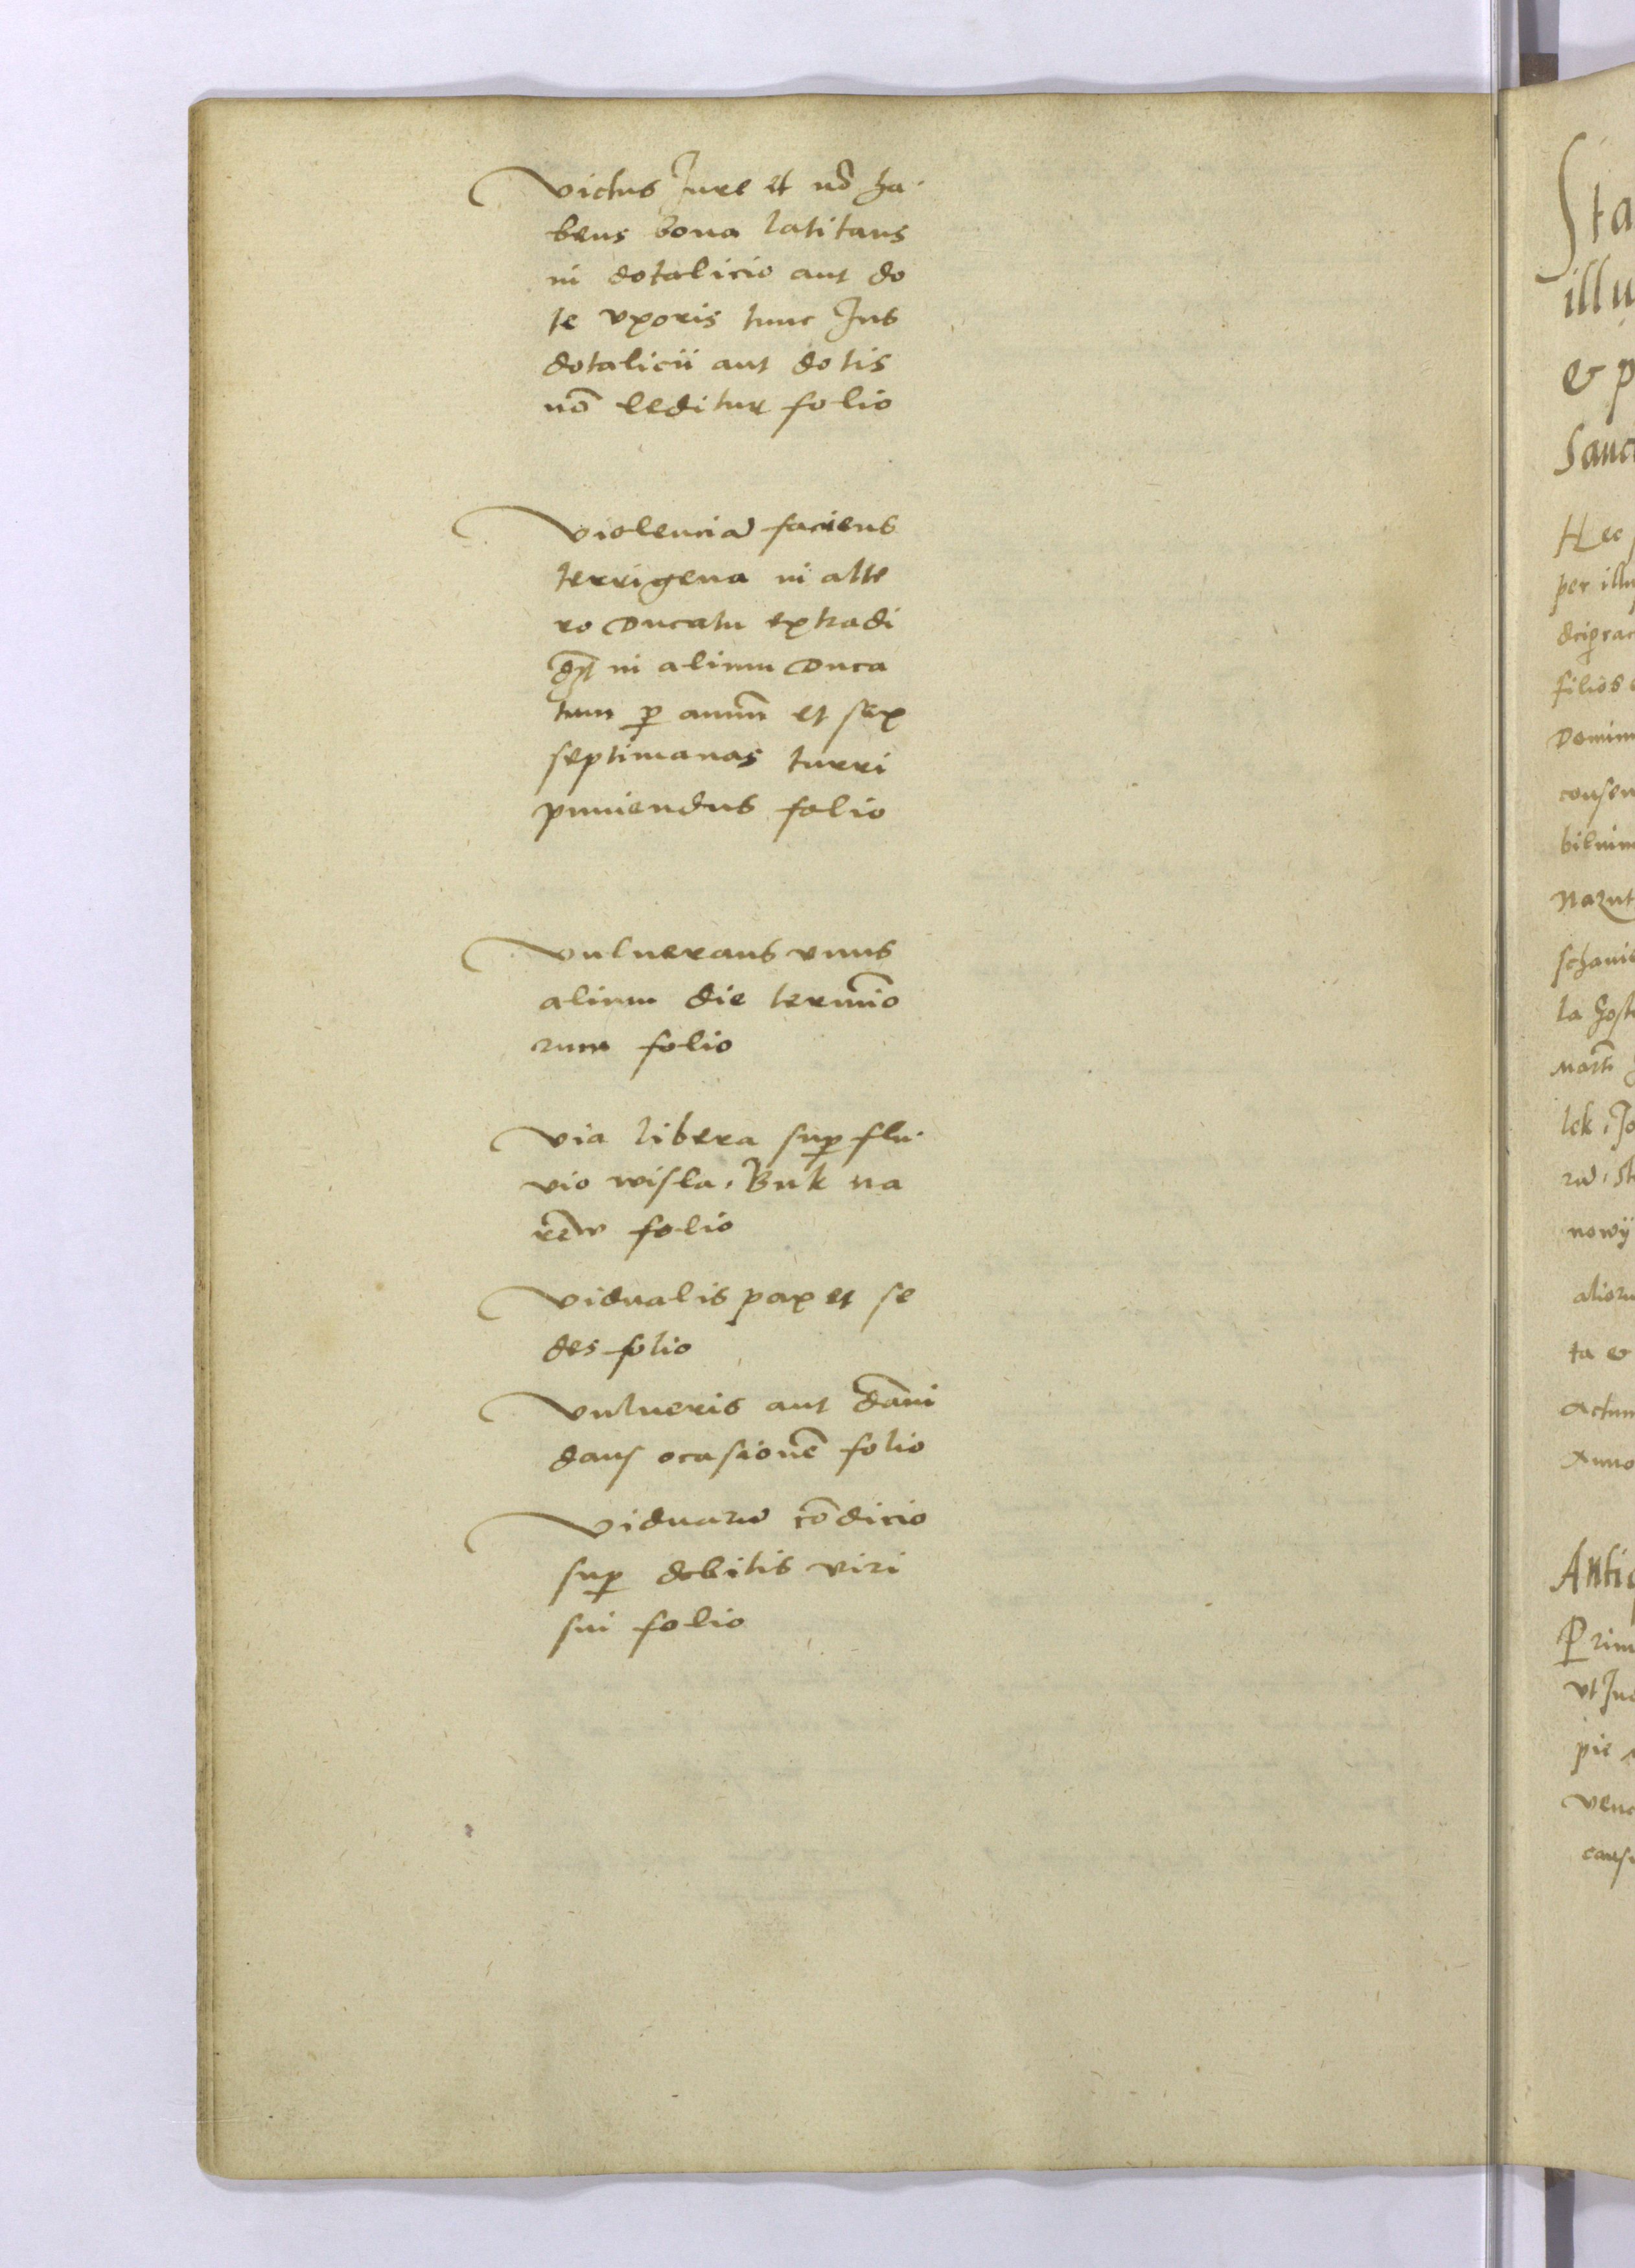 Victus Jure et nō ha-
bens bona latitans
in dotalicio aut do
te vxoris tunc Jus
dotalicii aut dotis
nō leditur folio
Violenciā faciens
terrigena in alte
ro Ducatu extradi
in alium Duca
tum p annū et sex
septimanas turri
puniendus folio
Vulnerans vnus
alium die termīo
rum folio
Via libera sup flu-
vio wisla, Buk na
rēw folio
Vidualis pax et se
des folio
Vulneris aut dāni
dans ocasionē folio
Viduarū cōdicio
sup debitis viri
sui folio
Sta
illu
& p
Sanc
Hec
per illu
filios
Domin
consen
bilium
Mazut
schanie
la Gost
lek, Jo
nowÿ
alioru
ta &
Actum
Anno
Antiq
Prim
vt Jud
pie